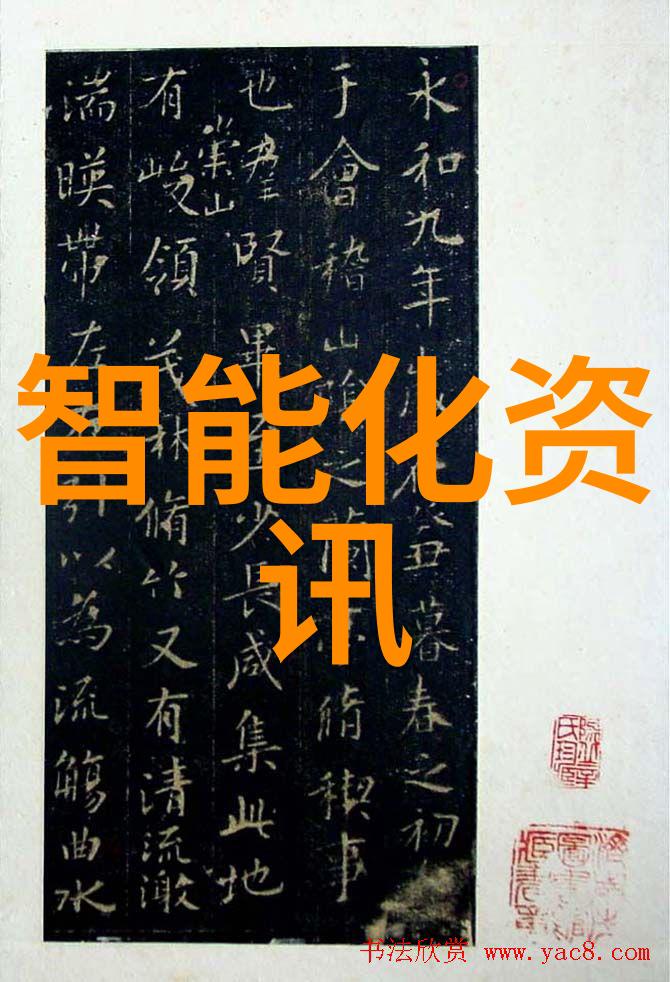 永和九年歲在癸丑暮春之初
于會稽山陰之蘭亭脩稧事
也羣賢畢至少長咸集此地
有崇山峻領茂林脩竹又有清流激
湍暎帶左右引以為流觴曲水
智能化资
讯
书法欣赏 www.yac8.com